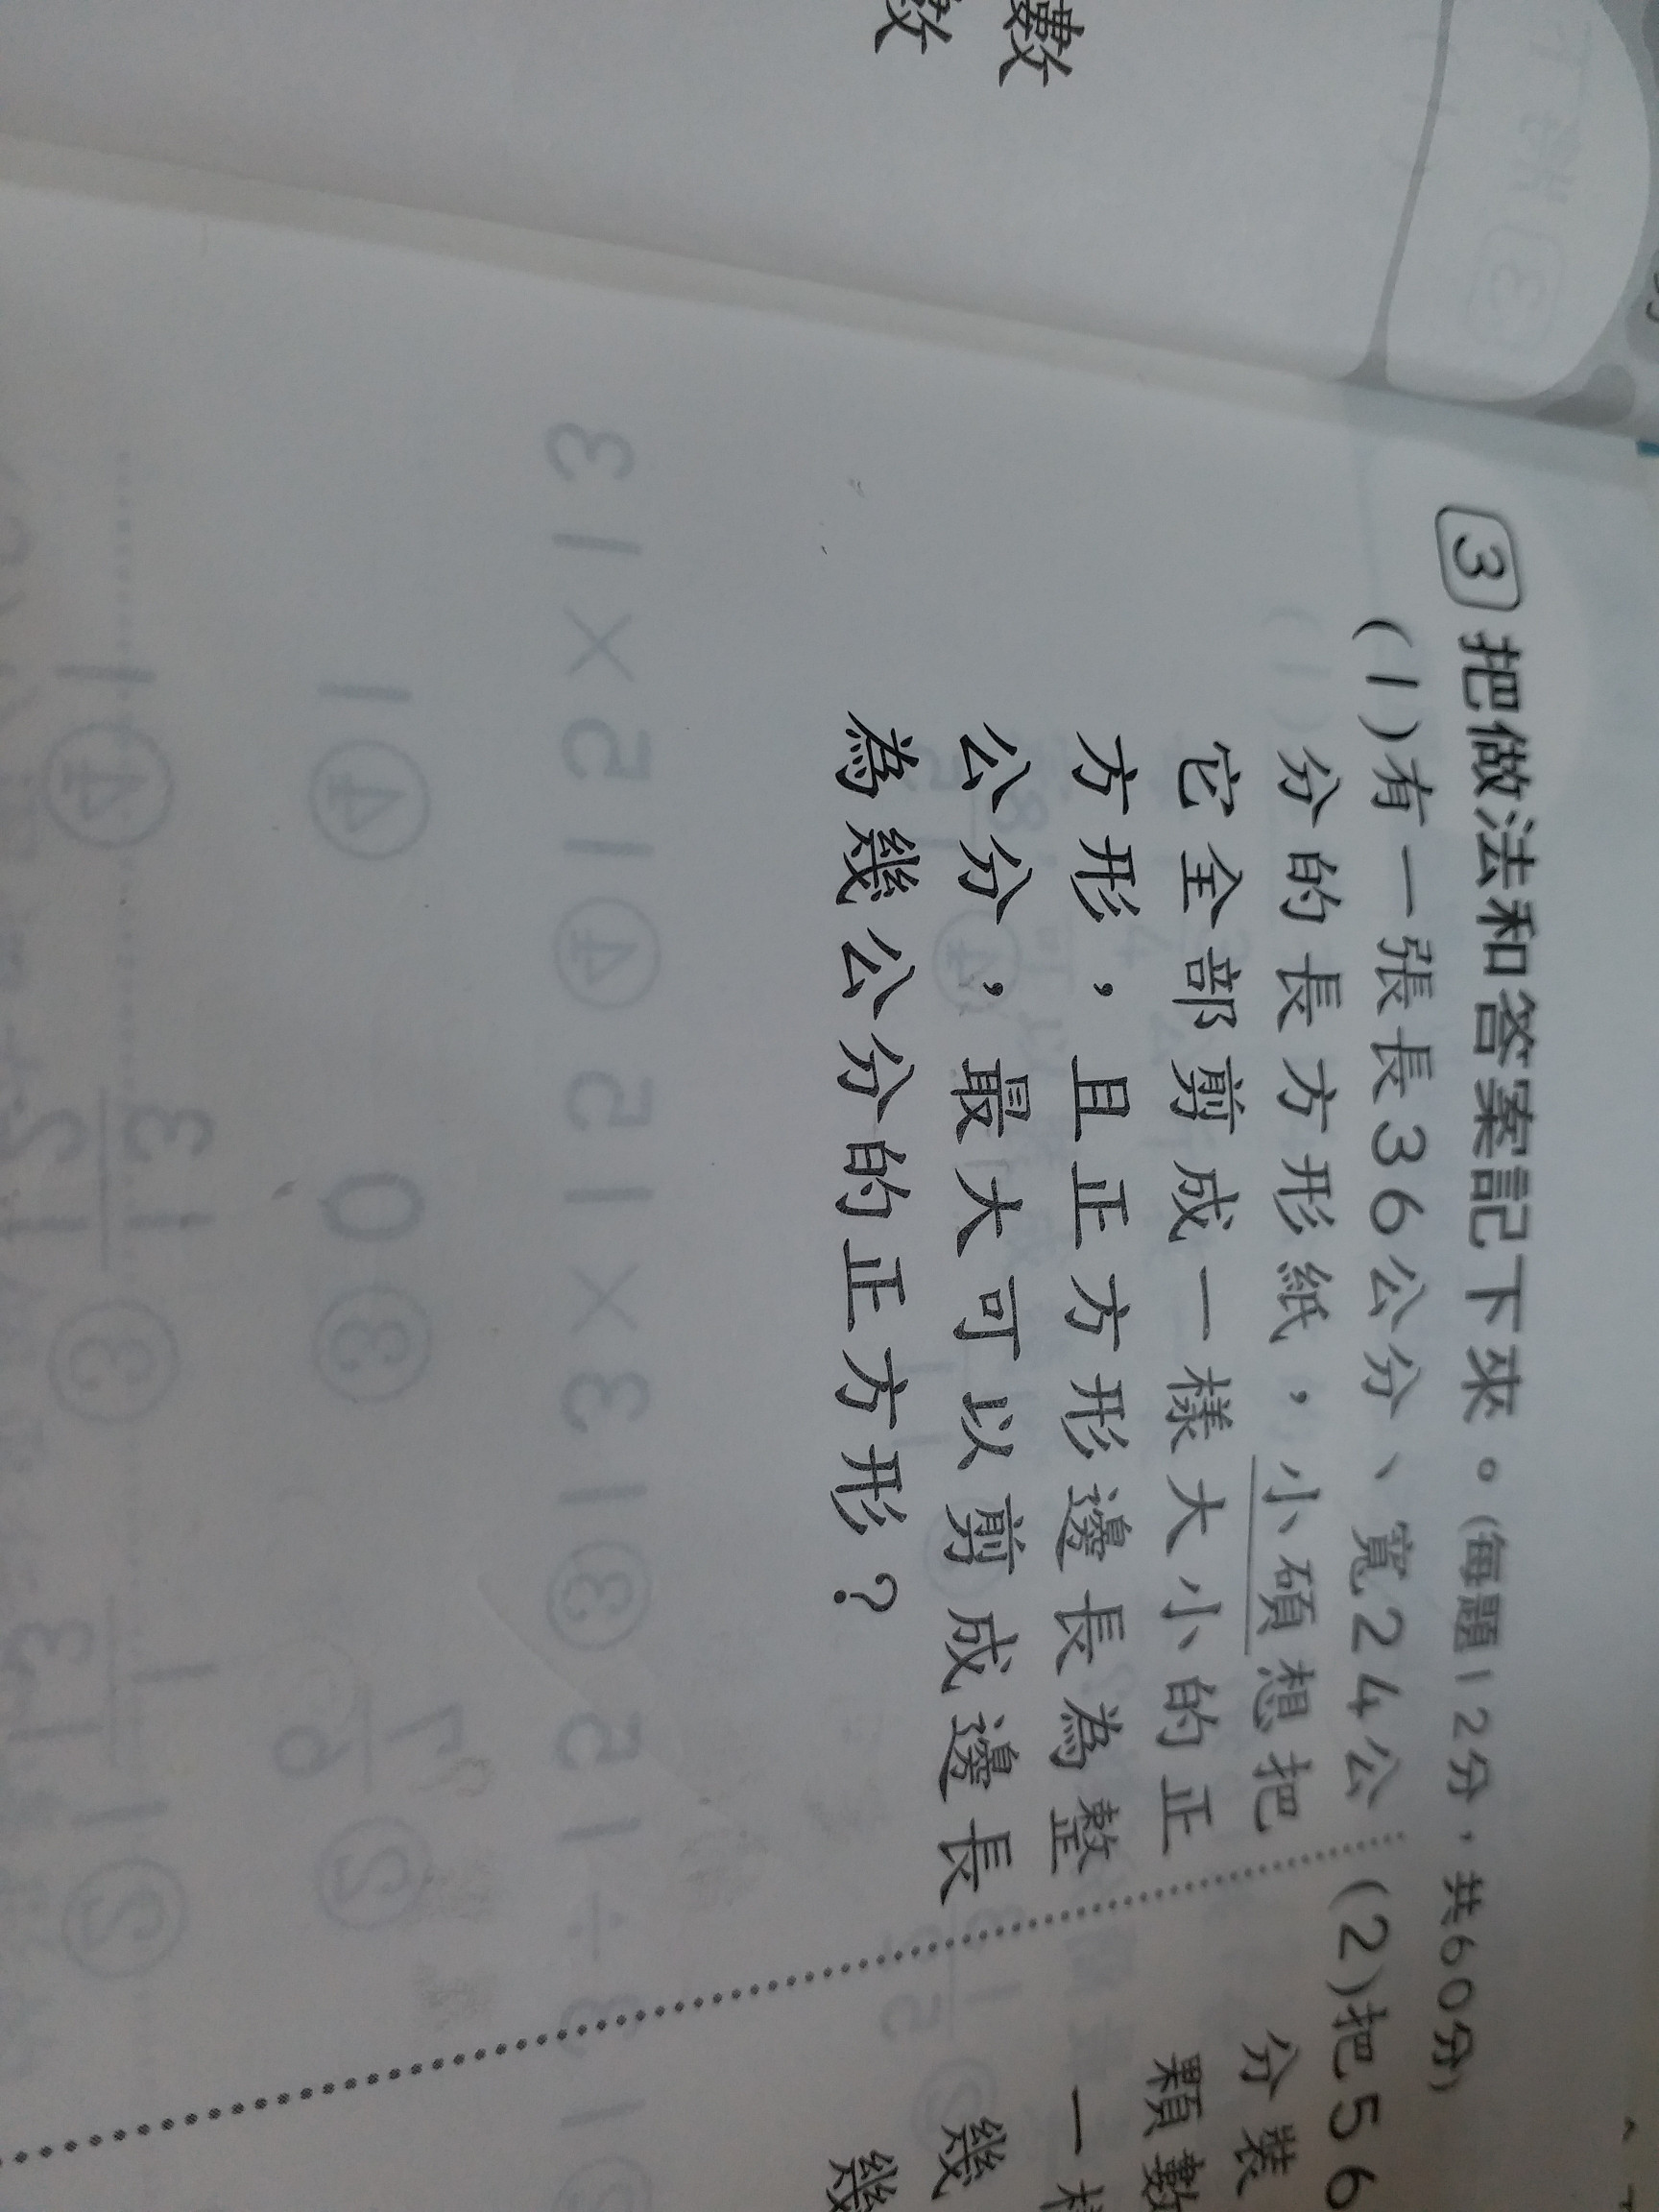 數
數
3 把做法和答案記下來。(每題12分，共60分)
(1)有一張長36公分、寬24公
分的長方形紙，小碩想把
它全部剪成一樣大小的正
方形，且正方形邊長為整
公分，最大可以剪成邊長
為幾公分的正方形？
(2)把56
分裝
顆數
一樣
幾
幾